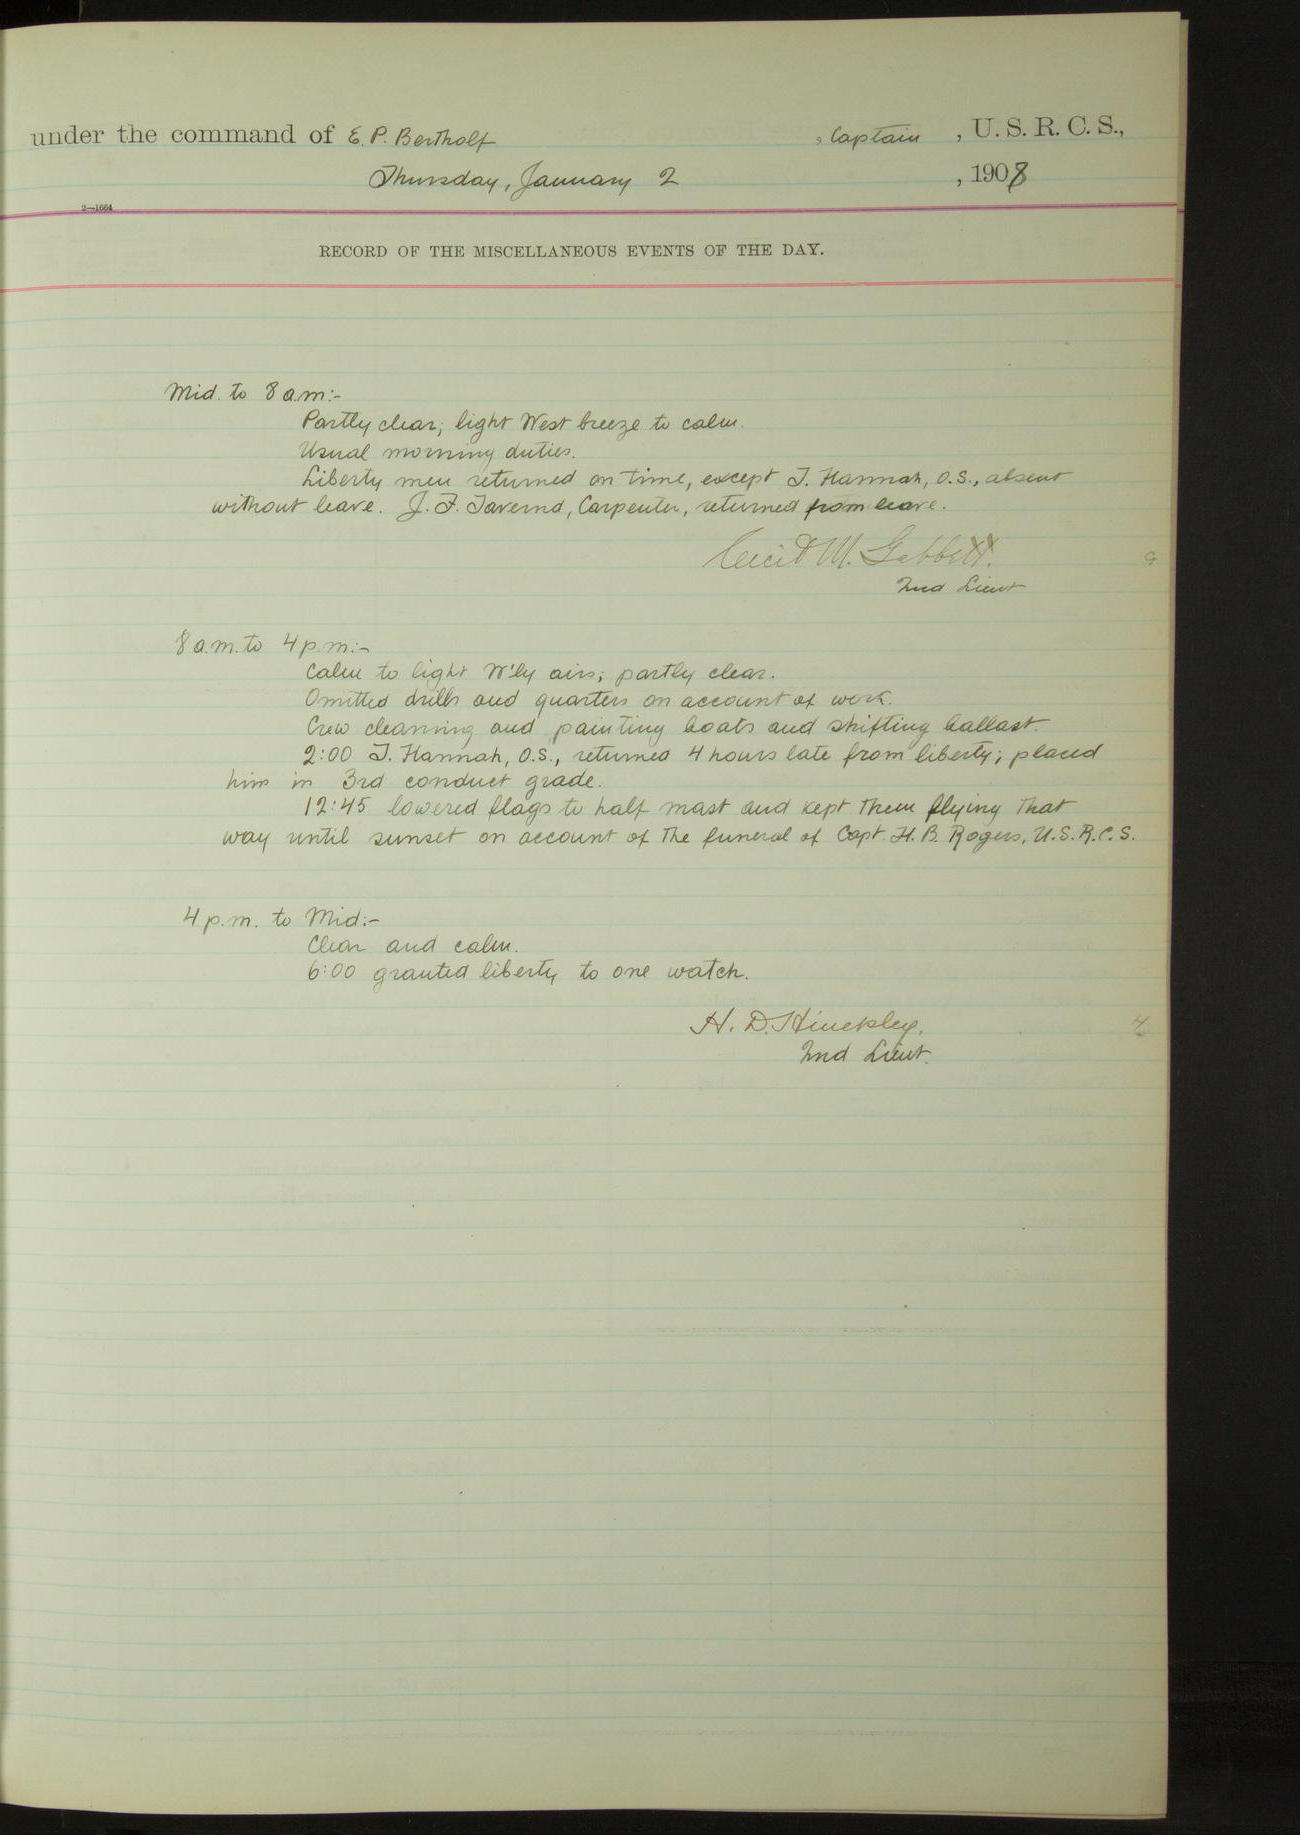 under the command of E. P. Bertholf, Captain, U. S. R. C. S.,
Thursday, January 2, 1908
2—1664
RECORD OF THE MISCELLANEOUS EVENTS OF THE DAY.
Mid. to 8 a.m:-
Partly clear; light West breeze to calm.
Usual morning duties.
Liberty men returned on time, except T. Hannah, O.S., absent
without leave. J. F. Taverna, Carpenter, returned from leave.
Cecil M. Gabbett.
2nd Lieut
8 a.m. to 4 p.m:-
Calm to light W'ly airs; partly clear.
Omitted drills and quarters on account of work.
Crew cleaning and painting boats and shifting ballast.
2:00 T. Hannah, O.S., returned 4 hours late from liberty; placed
him in 3rd conduct grade.
12:45 lowered flags to half mast and kept them flying that
way until sunset on account of the funeral of Capt. H. B. Rogers, U.S.R.C.S.
4 p.m. to Mid:-
Clear and calm.
6:00 granted liberty to one watch.
H. D. Hinckley.
2nd Lieut.